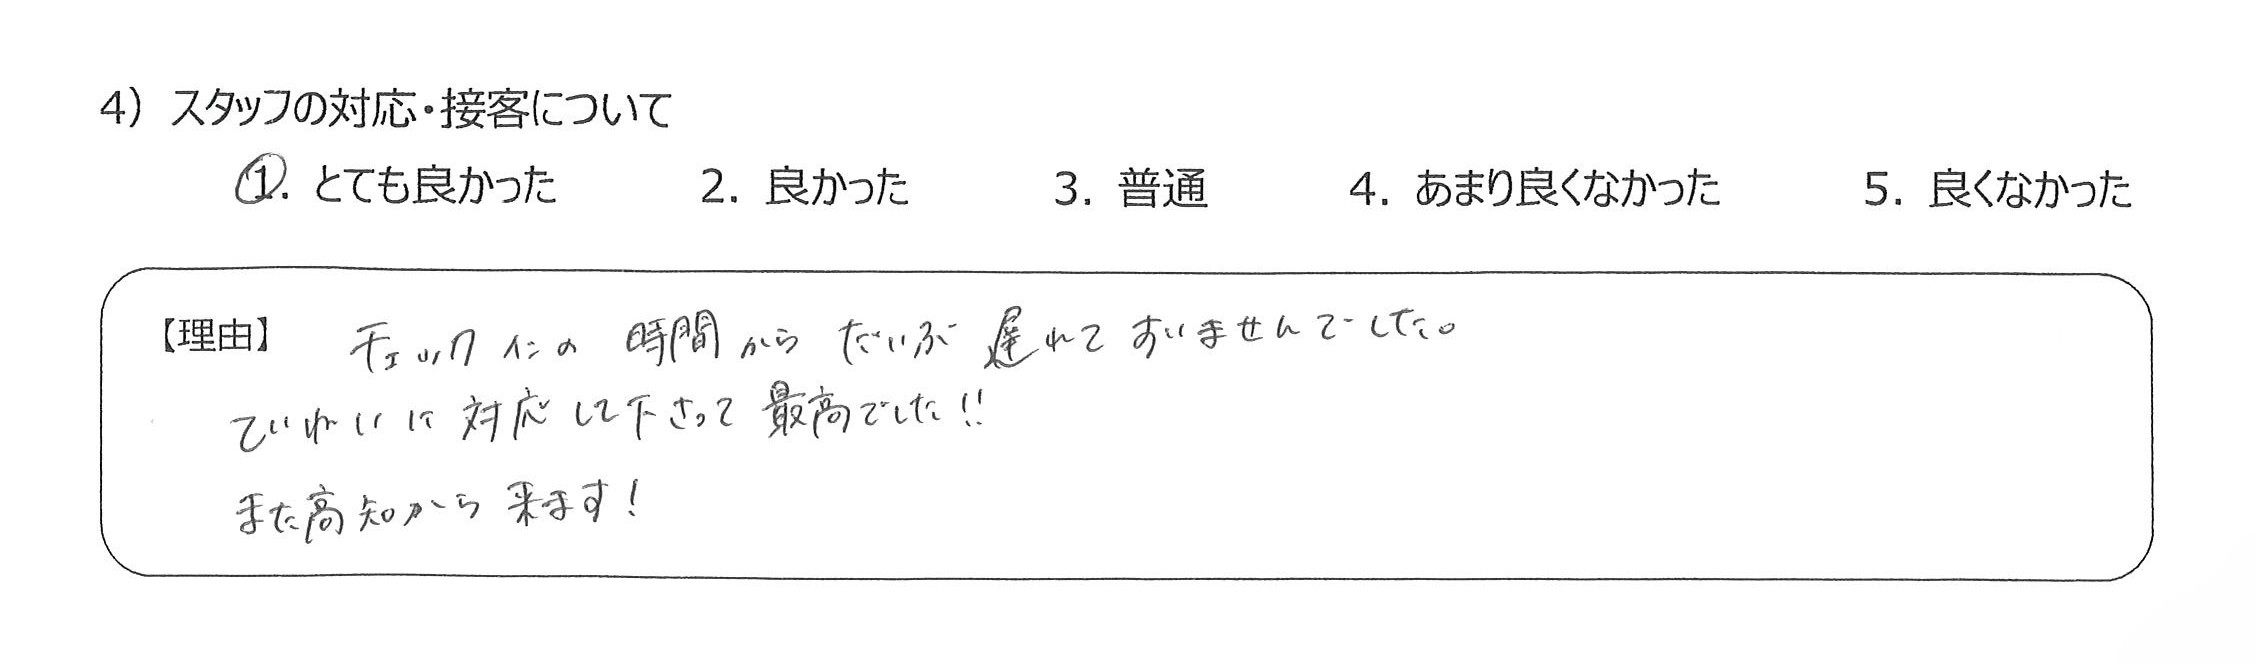 4）スタッフの対応・接客について
①. とても良かった　2. 良かった　3. 普通　4. あまり良くなかった　5. 良くなかった
【理由】　チェックインの時間からだいぶ遅れてすいませんでした。
ていねいに対応して下さって最高でした!!
また高知から来ます!